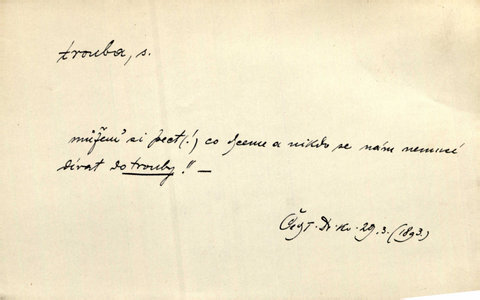 trouba, s.
můžem' si péct(!) co chceme a nikdo se nám nemusí
dívat do trouby!" —
29.3.(1893.)